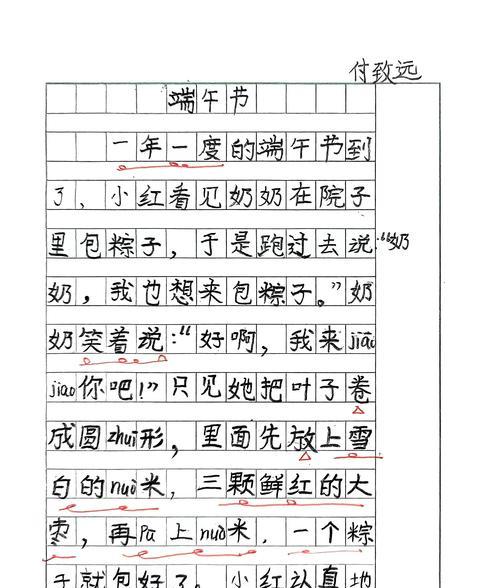 付致远
端午节
一年一度的端午节到
了，小红看见奶奶在院子
里包粽子，于是跑过去说：“奶
奶，我也想来包粽子。”奶
奶笑着说：“好啊，我来jiāo
jiao你吧！”只见她把叶子卷
成圆zhuī形，里面先放上雪
白的nuò米，三颗鲜红的大
枣，再Pa上nuò米，一个粽
子就包好了。小红认真地